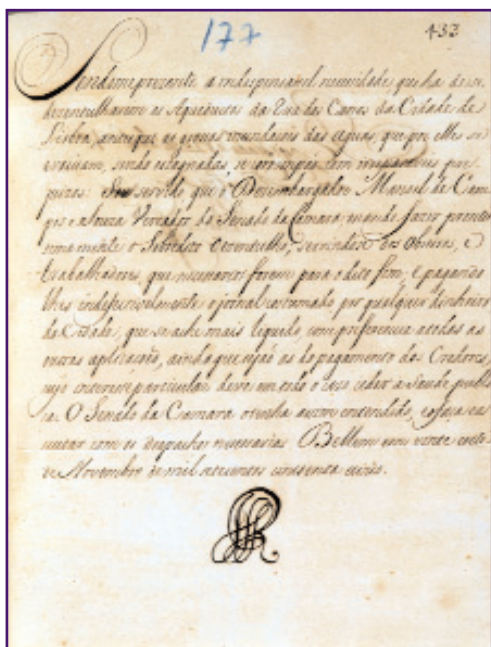 177
432
Sendome prezente a indispensavel necessidade, que ha de se
dezentulharem os Aqueductos da Rua dos Canos da Cidade de
Lisboa, antes que as grossas inundaçoens das Aguas, que por elles se
evacuam, sendo estagnadas, se corrompão com
Sou servido, que o Dezembargador Manoel de Cam
pos e Souza Vereador do Senado da Camara, mande fazer promta
mente o sobredito dezentulho, servindose dos Obreiros, e
trabalhadores, que necessarios forem para o dito fim, e pagando
lhes indefectivelmente o jornal costumado por qualquer dinheiro
da Cidade, que se ache mais liquido, com preferencia a todas as
outras aplicaçoens, ainda que sejão as do pagamento dos Credores,
cujo interesse particular deve em tudo ceder a saude publi
ca. O Senado da Camara o tenha assim entendido, e o faça exe
cutar com os despachos necessarios. Bellem em vinte e sete
de Novembro de mil setecentos cincoenta e cinco.